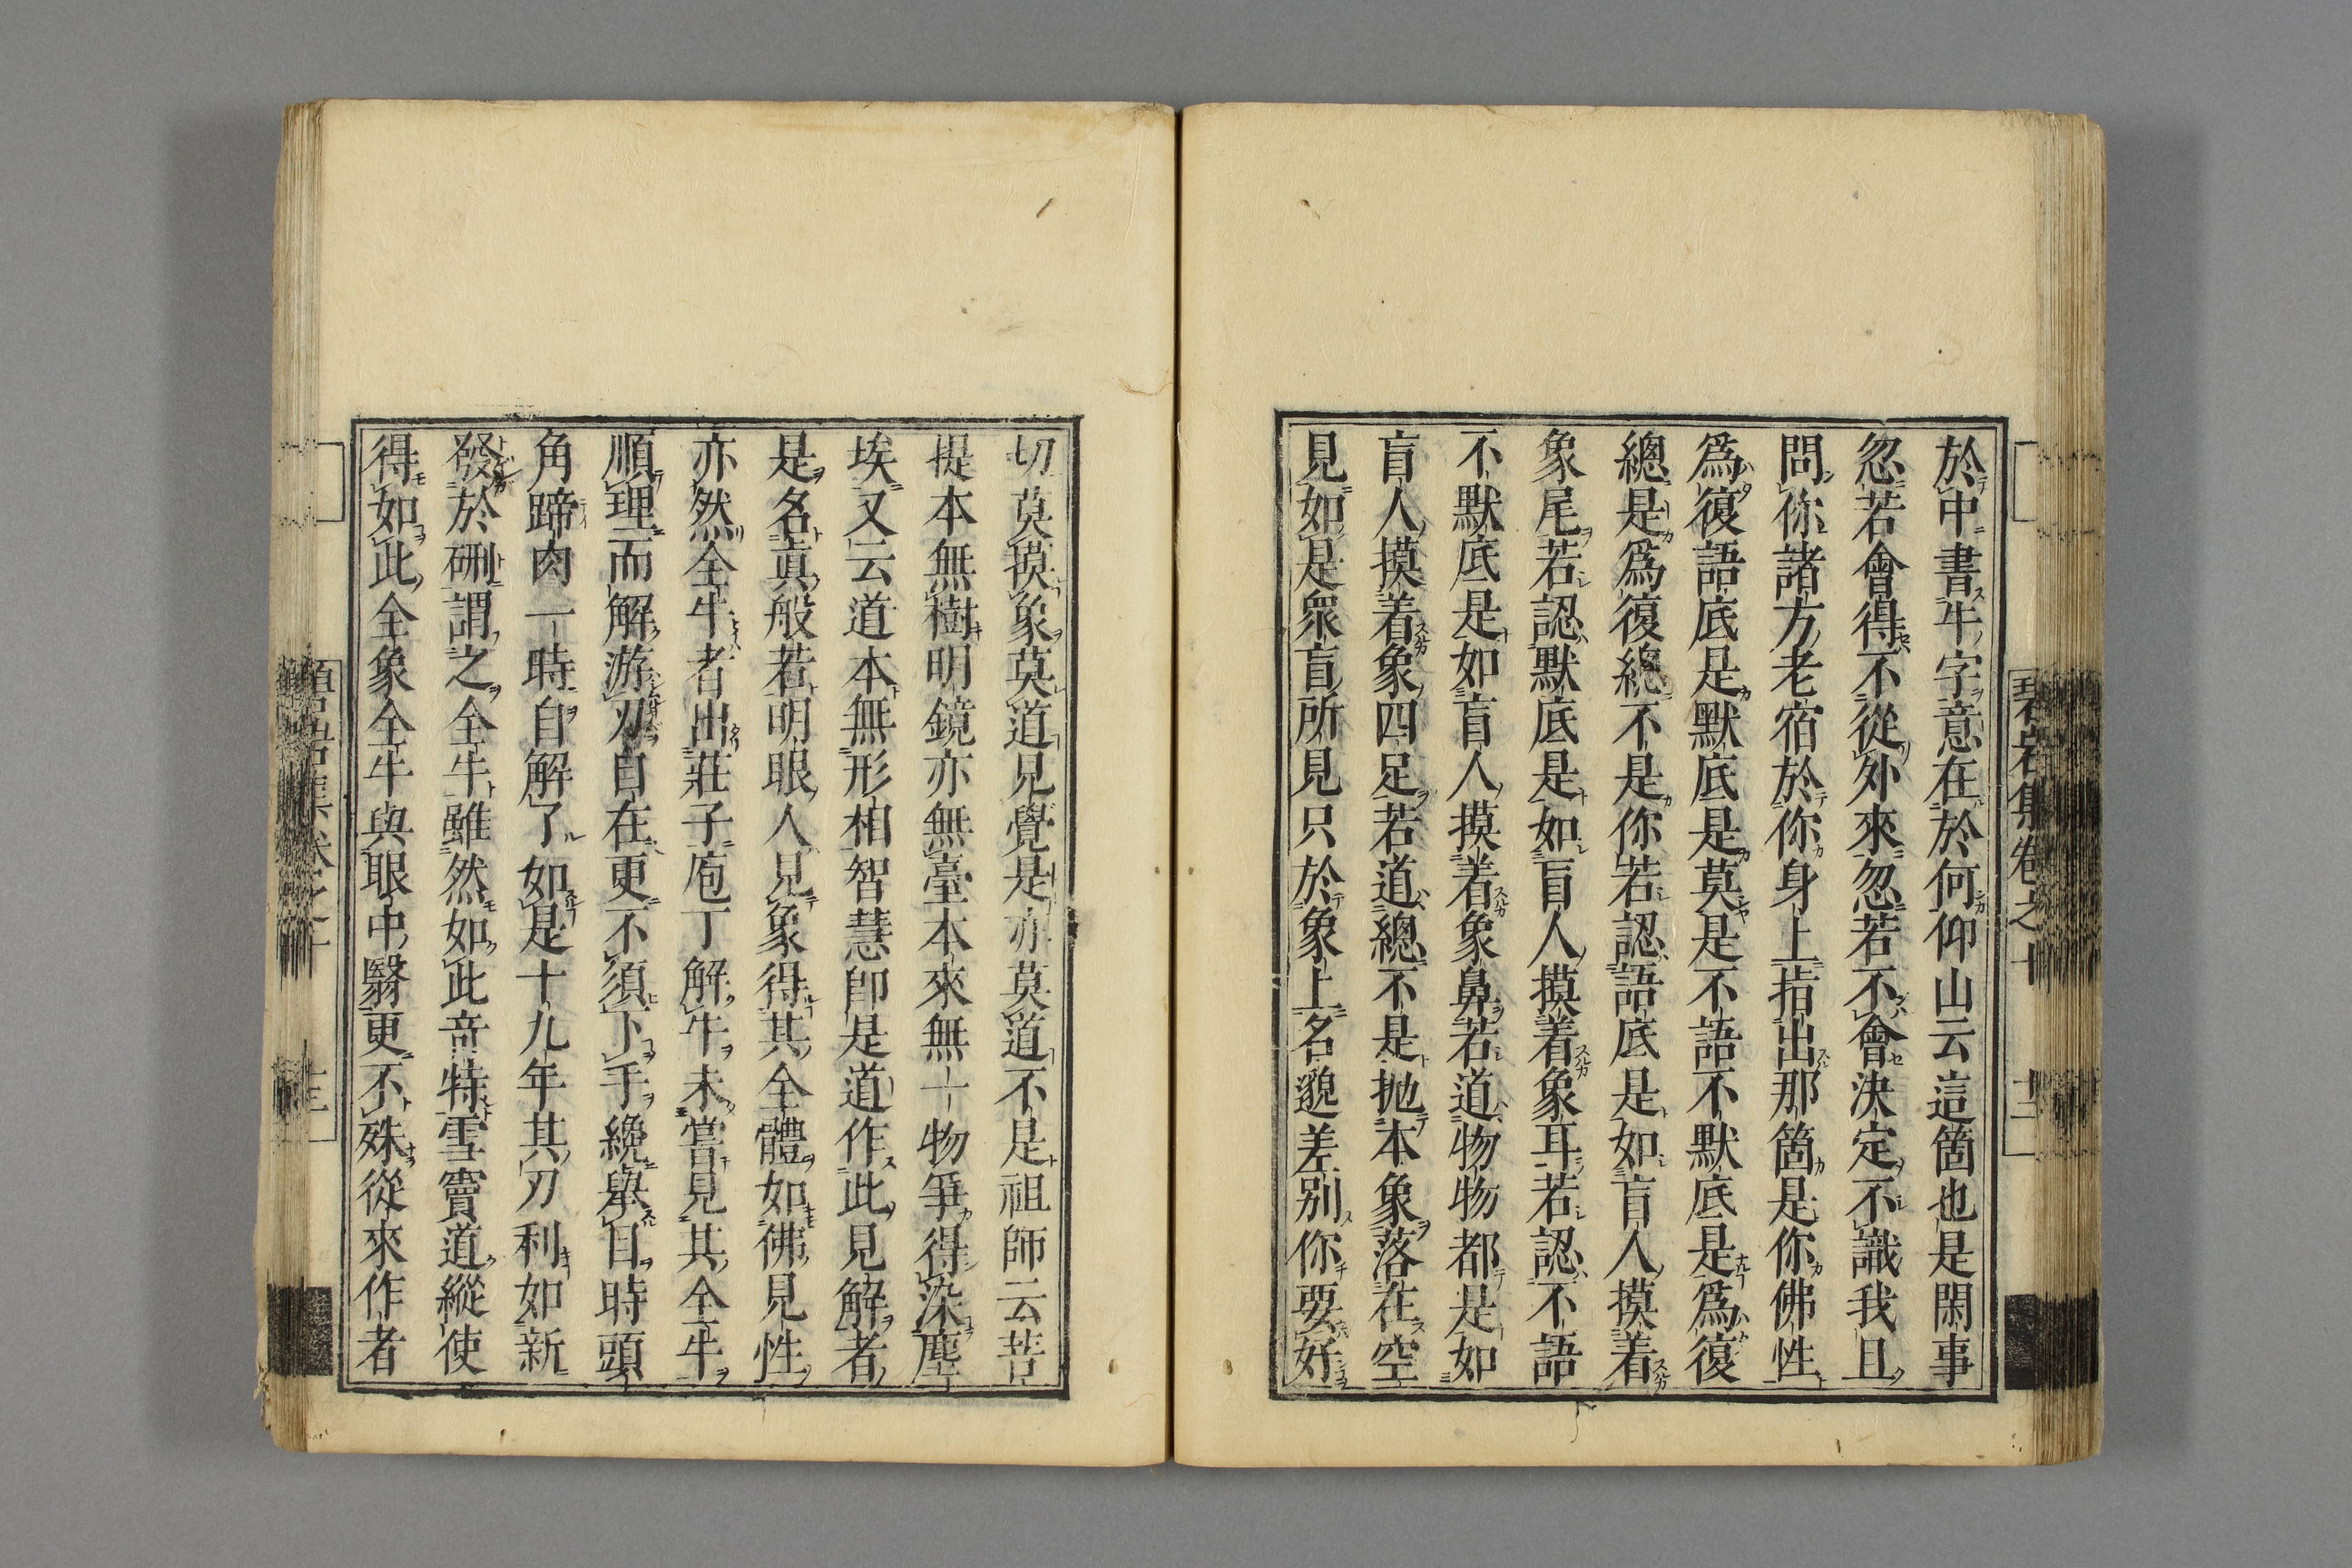 於中書牛字意在於何仰山云這箇也是閑事
忽若會得不從外來忽若不會決定不識我且
問你諸方老宿於你身上指出那箇是你佛性
爲復語底是默底是莫是不語不默底是爲復
總是爲復總不是你若認語底是如盲人摸着
象尾若認默底是如盲人摸着象耳若認不語
不默底是如盲人摸着象鼻若道物物都是如
盲人摸着象四足若道總不是抛本象落在空
見如是衆盲所見只於象上名邈差別你要好
切莫摸象莫道見覺是亦莫道不是祖師云菩
提本無樹明鏡亦無臺本來無一物爭得染塵
埃又云道本無形相智慧卽是道作此見解者
是名眞般若明眼人見象得其全體如佛見性
亦然全牛者出莊子庖丁解牛未嘗見其全牛
順理而解游刃自在更不須下手纔擧目時頭
角蹄肉一時自解了如是十九年其刃利如新
發於硎謂之全牛雖然如此竒特雪竇道縱使
得如此全象全牛與眼中翳更不殊從來作者
碧岩集卷之十
十三